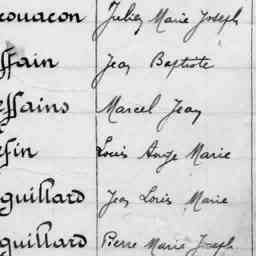 couacon Julien Marie Joseph
ffain Jean Baptiste
effains Marcel Jean
efin Louis Ange Marie
guillard Jean Louis Marie
guillard Pierre Marie Joseph